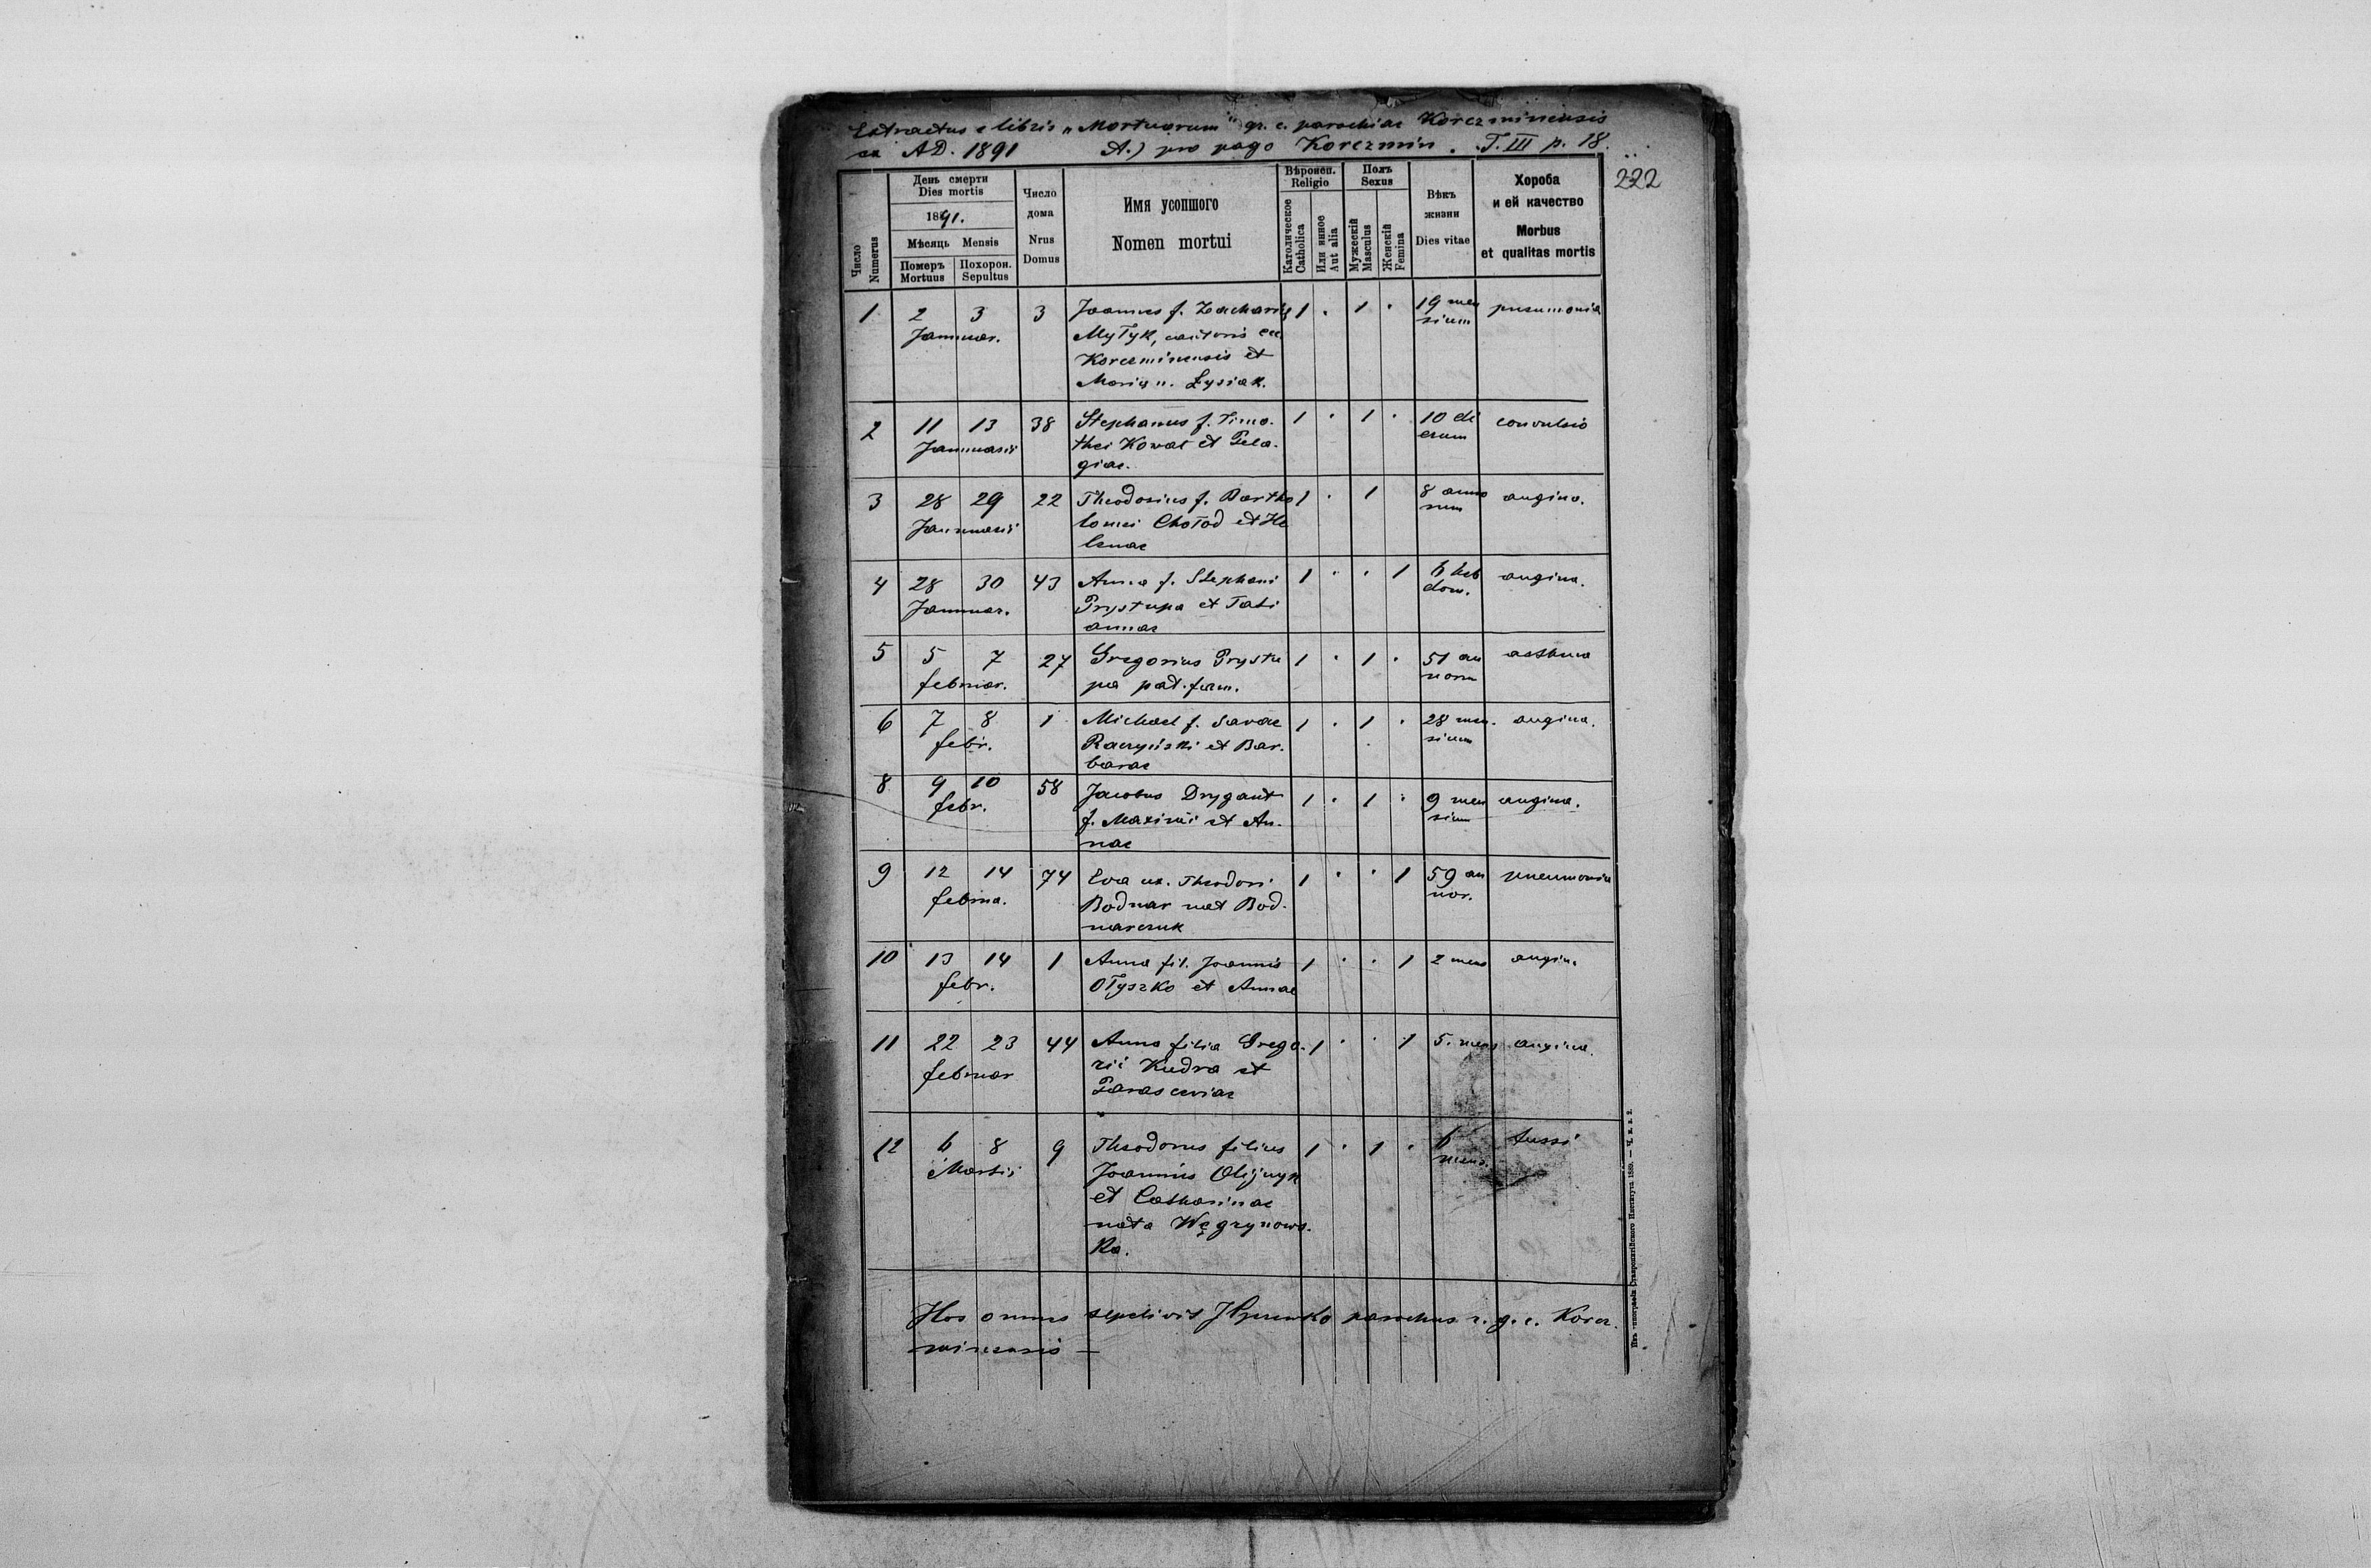 Extractus e libris „Mortuorum" gr. c. parochiae Korczminensis
ca AD. 1891 A.) pro pago Korczmin. T. III p. 18.
222
Число
Numerus
День смерти
Dies mortis
1891.
Мѣсяць Mensis
Померъ
Mortuus
Похорон.
Sepultus
Число
дома
Nrus
Domus
Имя усопшого
Nomen mortui
Вѣроисп.
Religio
Католическое
Catholica
Или инное
Aut alia
Полъ
Sexus
Мужескій
Masculus
Женскій
Femina
Вѣкъ
жизни
Dies vitae
Хороба
и ей качество
Morbus
et qualitas mortis
1 2 3 3 Joannes f. Zacharię 1 . 1 . 19 men pneumonia
Januar. Mytyk, cantoris ecc. sium
Korczminensis et
Marię n. Łysiak.
2 11 13 38 Stephanus f. Timo- 1 . 1 . 10 di convulsio
Januarii thei Kowal et Pela- erum
giae.
3 28 29 22 Theodosius f. Bartho 1 . 1 8 anno angina.
Januarii lomei Chołod et He rum
lenae
4 28 30 43 Anna f. Stephani 1 . . 1 6 heb angina.
Januar. Prystupa et Tati dom.
annae
5 5 7 27 Gregorius Prystu 1 . 1 . 51 an asthma
februar. pa pat. fam. norum
6 7 8 1 Michael f. Savae 1 . 1 . 28 men. angina.
febr. Raczyński et Bar- sium
barae
8 9 10 58 Jacobus Drygant 1 . 1 . 9 men angina.
febr. f. Maximi et An- sium
nae
9 12 14 74 Eva ux. Theodori 1 . . 1 59 an pneumonia
februa. Bodnar nat Bod- nor.
narczuk
10 13 14 1 Anna fil. Joannis 1 . . 1 2 mens angina
febr. Ołyszko et Annae
11 22 23 44 Anna filia Grego- 1 . . 1 5. mens angina.
februar rii Kudra et
Parasceviae
12 6 8 9 Theodorus filius 1 . 1 . 6 tussi
Martii Joannis Olijnyk mens.
et Catharinae
nata Węgrynows-
ka.
Hos omnes sepelivit parochus r. g. c. Korcz-
minensis —
Изъ типографіи Ставропигійского Института 1889. — Ч. к. з. 2.